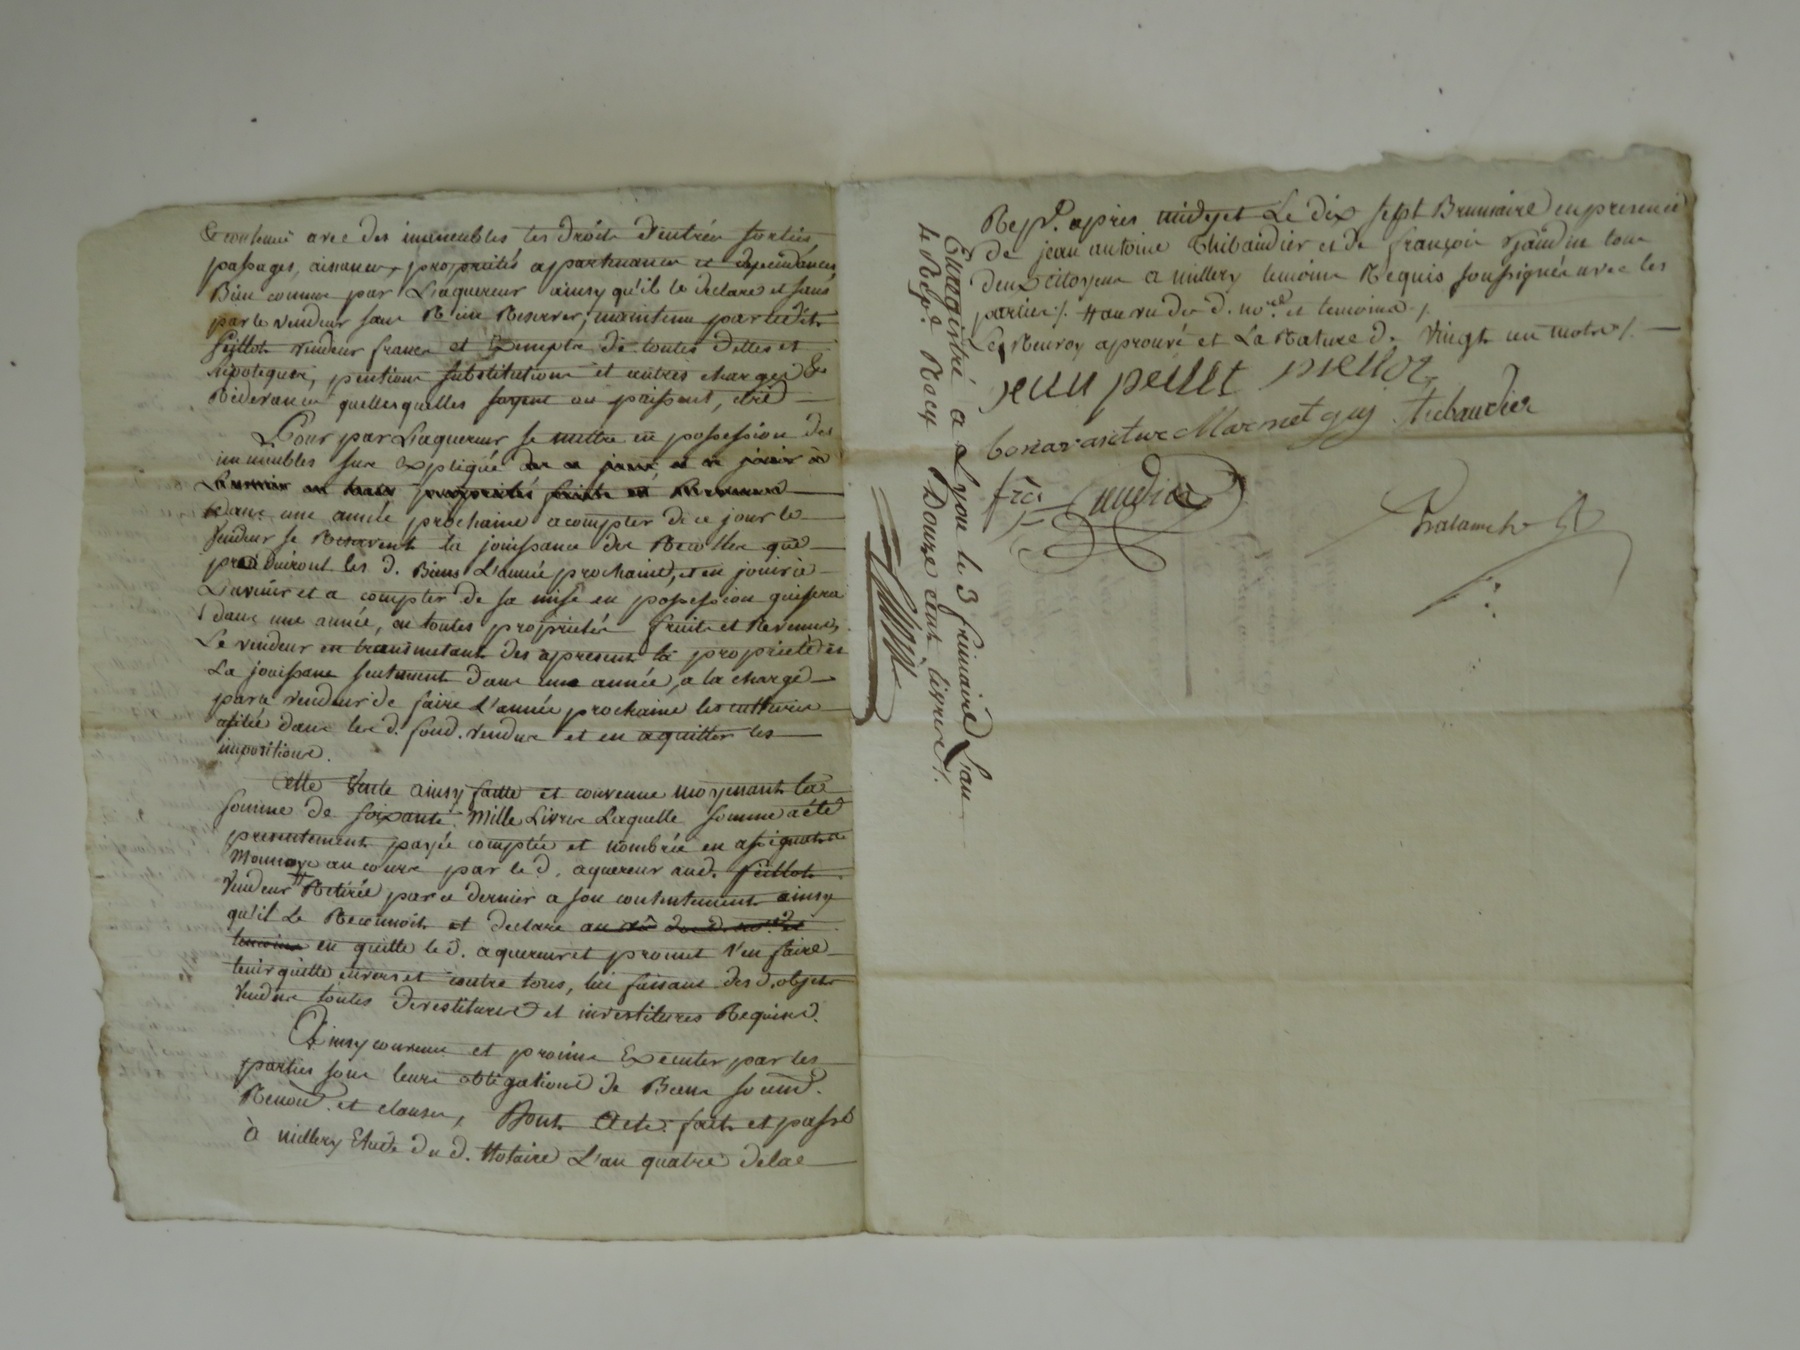 & contenue avec des immeubles les droits d'entrées sorties,
passages, aisances, propriétés appartenances et dependances,
Bien connus par L'aquereur ainsy qu'il le declare et sans
par le vendeur sans R'ien Reserver, maintenu par ledit
peillot vendeur francs et Exempts de toutes dettes et
hipoteques, pentions substitutions et autres charges &
Rédevances quellesquelles soyent ou puissent, etre
Pour par L'aquereur se mettre en possession des
immeubles sus Expliqués
dans une année prochaine a compter de ce jour le
vendeur se Reservent la jouissance des Recoltes que
produiront les d. Biens L'année prochaine, et en jouir a
L'avenir et a compter de sa mise en possession qui sera
dans une année, en toutes proprietés fruits et Revenus,
Le vendeur en transmetant des apresent la proprieté et
La jouissance seulement dans une année, a la charge
par le vendeur de faire L'année prochaine les cultures
dans les d. fond. vendus et en aquitter les
impositions.
Cette vente ainsy faitte et convenue moyenant la
somme de soixante Mille Livres Laquelle somme a été
presentement payée comptée et nombrée en assignats
Monnoye au cours par le d. aquereur aud. peillot
vendeur # Retirée par ce dernier a son contentement ainsy
qu'il Le Reconnoit et declare au vû des d. no.re et
temoins en quitte le d. aquereur et promet L'en faire
tenir quitte envers et contre tous, lui faisant des d. objets
vendus toutes devestitures et investitures Requises.
Ainsy convenu et promis Executer par les
parties sous leurs obligations de Biens soum.
Renon. et clauses, Dont Acte: fait et passé
à millery Etude du d. Notaire L'an quatre de la
Rep.e apres midy et Le dix sept Brumaire en presence
de jean antoine Thibaudier et de françois
deux citoyens a millery temoins Requis soussignés avec les
parties ./. # au vu des d. no.re et temoins ./.
Les Renvoy aprouvé et La Rature de vingt un mots ./.
jean peillot peillot
bonavanture Marmet guy thibaudier
frçs
Enregistré a Lyon le 3 frimaire L'an
4 Rep.e Recu Douze cent livres ./.